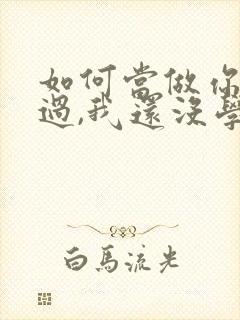 如何當做你
過,我還沒學
白馬流光